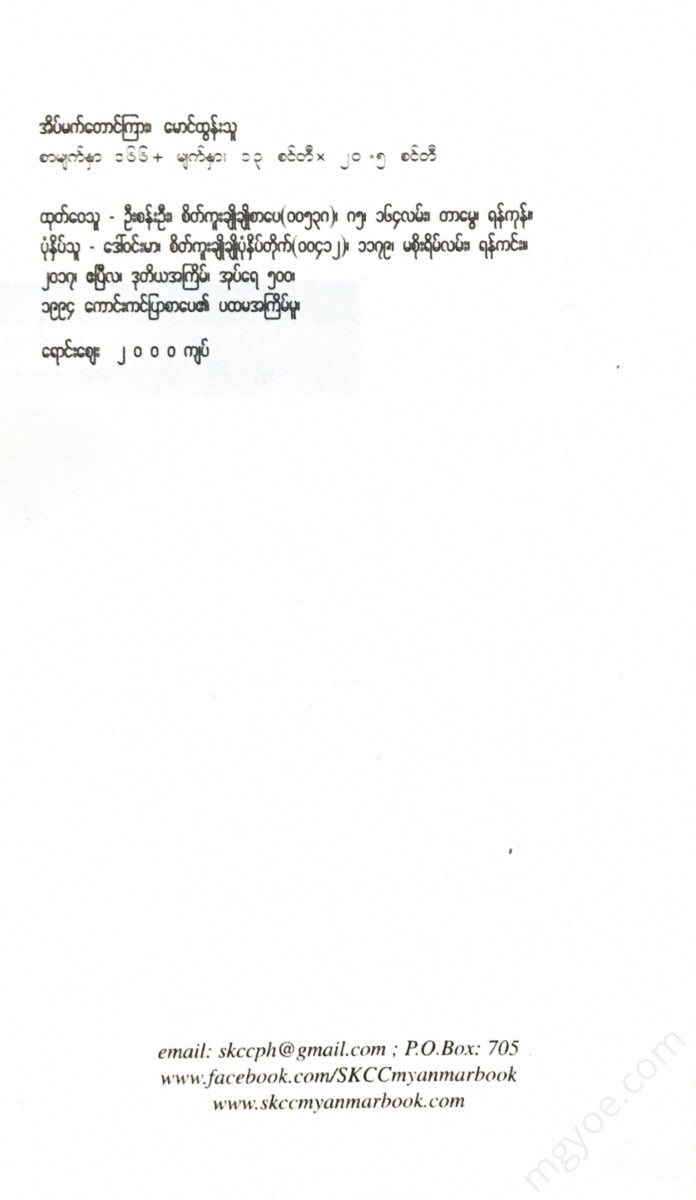 အိပ်မက်တောင်ကြား။ မောင်ထွန်းသူ
စာမျက်နှာ ၁၆၆+ မျက်နှာ၊ ၁၃ စင်တီ× ၂၀.၅ စင်တီ
ထုတ်ဝေသူ - ဦးစန်းဦး၊ စိတ်ကူးချိုချိုစာပေ(၀၀၅၃၈)၊ ဂ၅၊ ၁၆၄လမ်း၊ တာမွေ၊ ရန်ကုန်။
ပုံနှိပ်သူ - ဒေါ်ဝင်းမာ၊ စိတ်ကူးချိုချိုပုံနှိပ်တိုက်(၀၀၄၁၂)၊ ၁၁၇၉၊ မစိုးရိမ်လမ်း၊ ရန်ကင်း။
၂၀၁၇၊ ဧပြီလ၊ ဒုတိယအကြိမ်၊ အုပ်ရေ ၅၀၀၊
၁၉၉၄ ကောင်းကင်ပြာစာပေ၏ ပထမအကြိမ်မူ၊
ရောင်းဈေး ၂ ၀ ၀ ၀ ကျပ်
email: skccph@gmail.com ; P.O.Box: 705
www.facebook.com/SKCCmyanmarbook
www.skccmyanmarbook.com
mgyoe.com